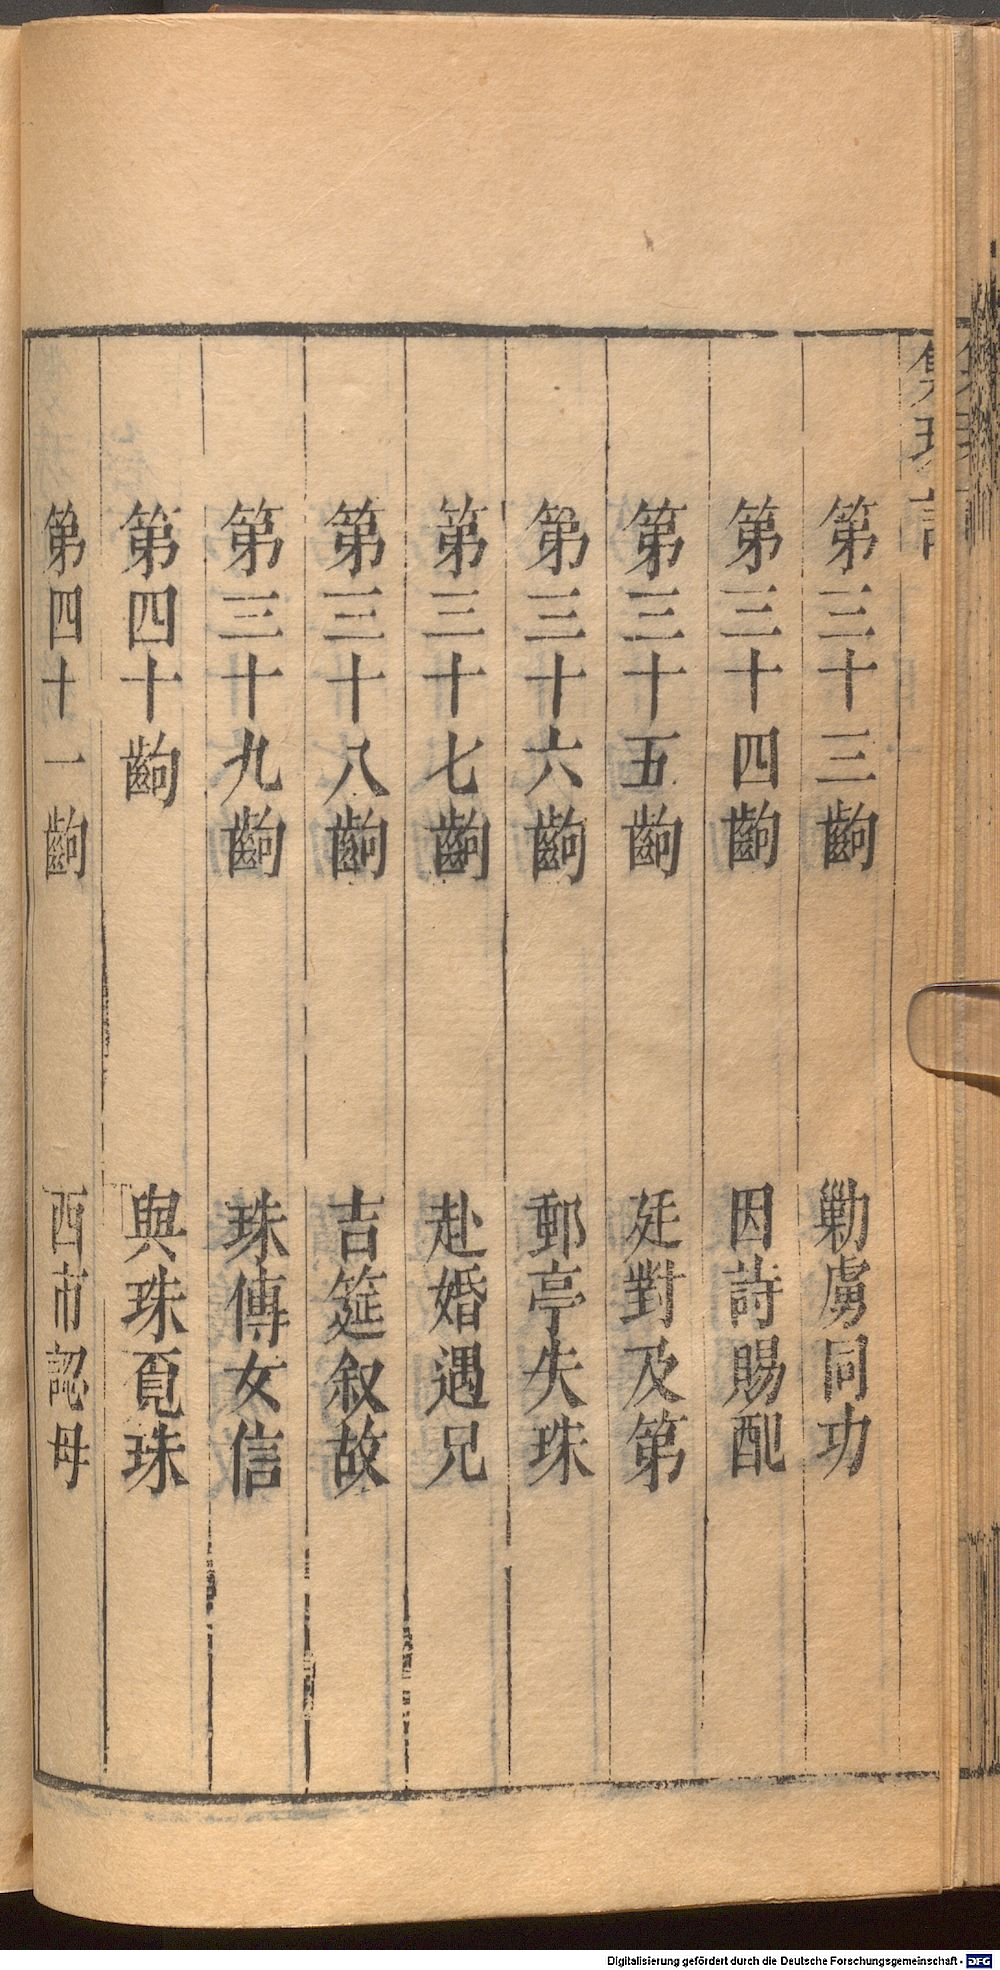 第三十三齣 勦虜同功
第三十四齣 因詩賜配
第三十五齣 廷對及第
第三十六齣 郵亭失珠
第三十七齣 赴婚遇兄
第三十八齣 吉筵叙故
第三十九齣 珠傳女信
第四十齣 與珠覓珠
第四十一齣 西市認母
Digitalisierung gefördert durch die Deutsche Forschungsgemeinschaft - DFG